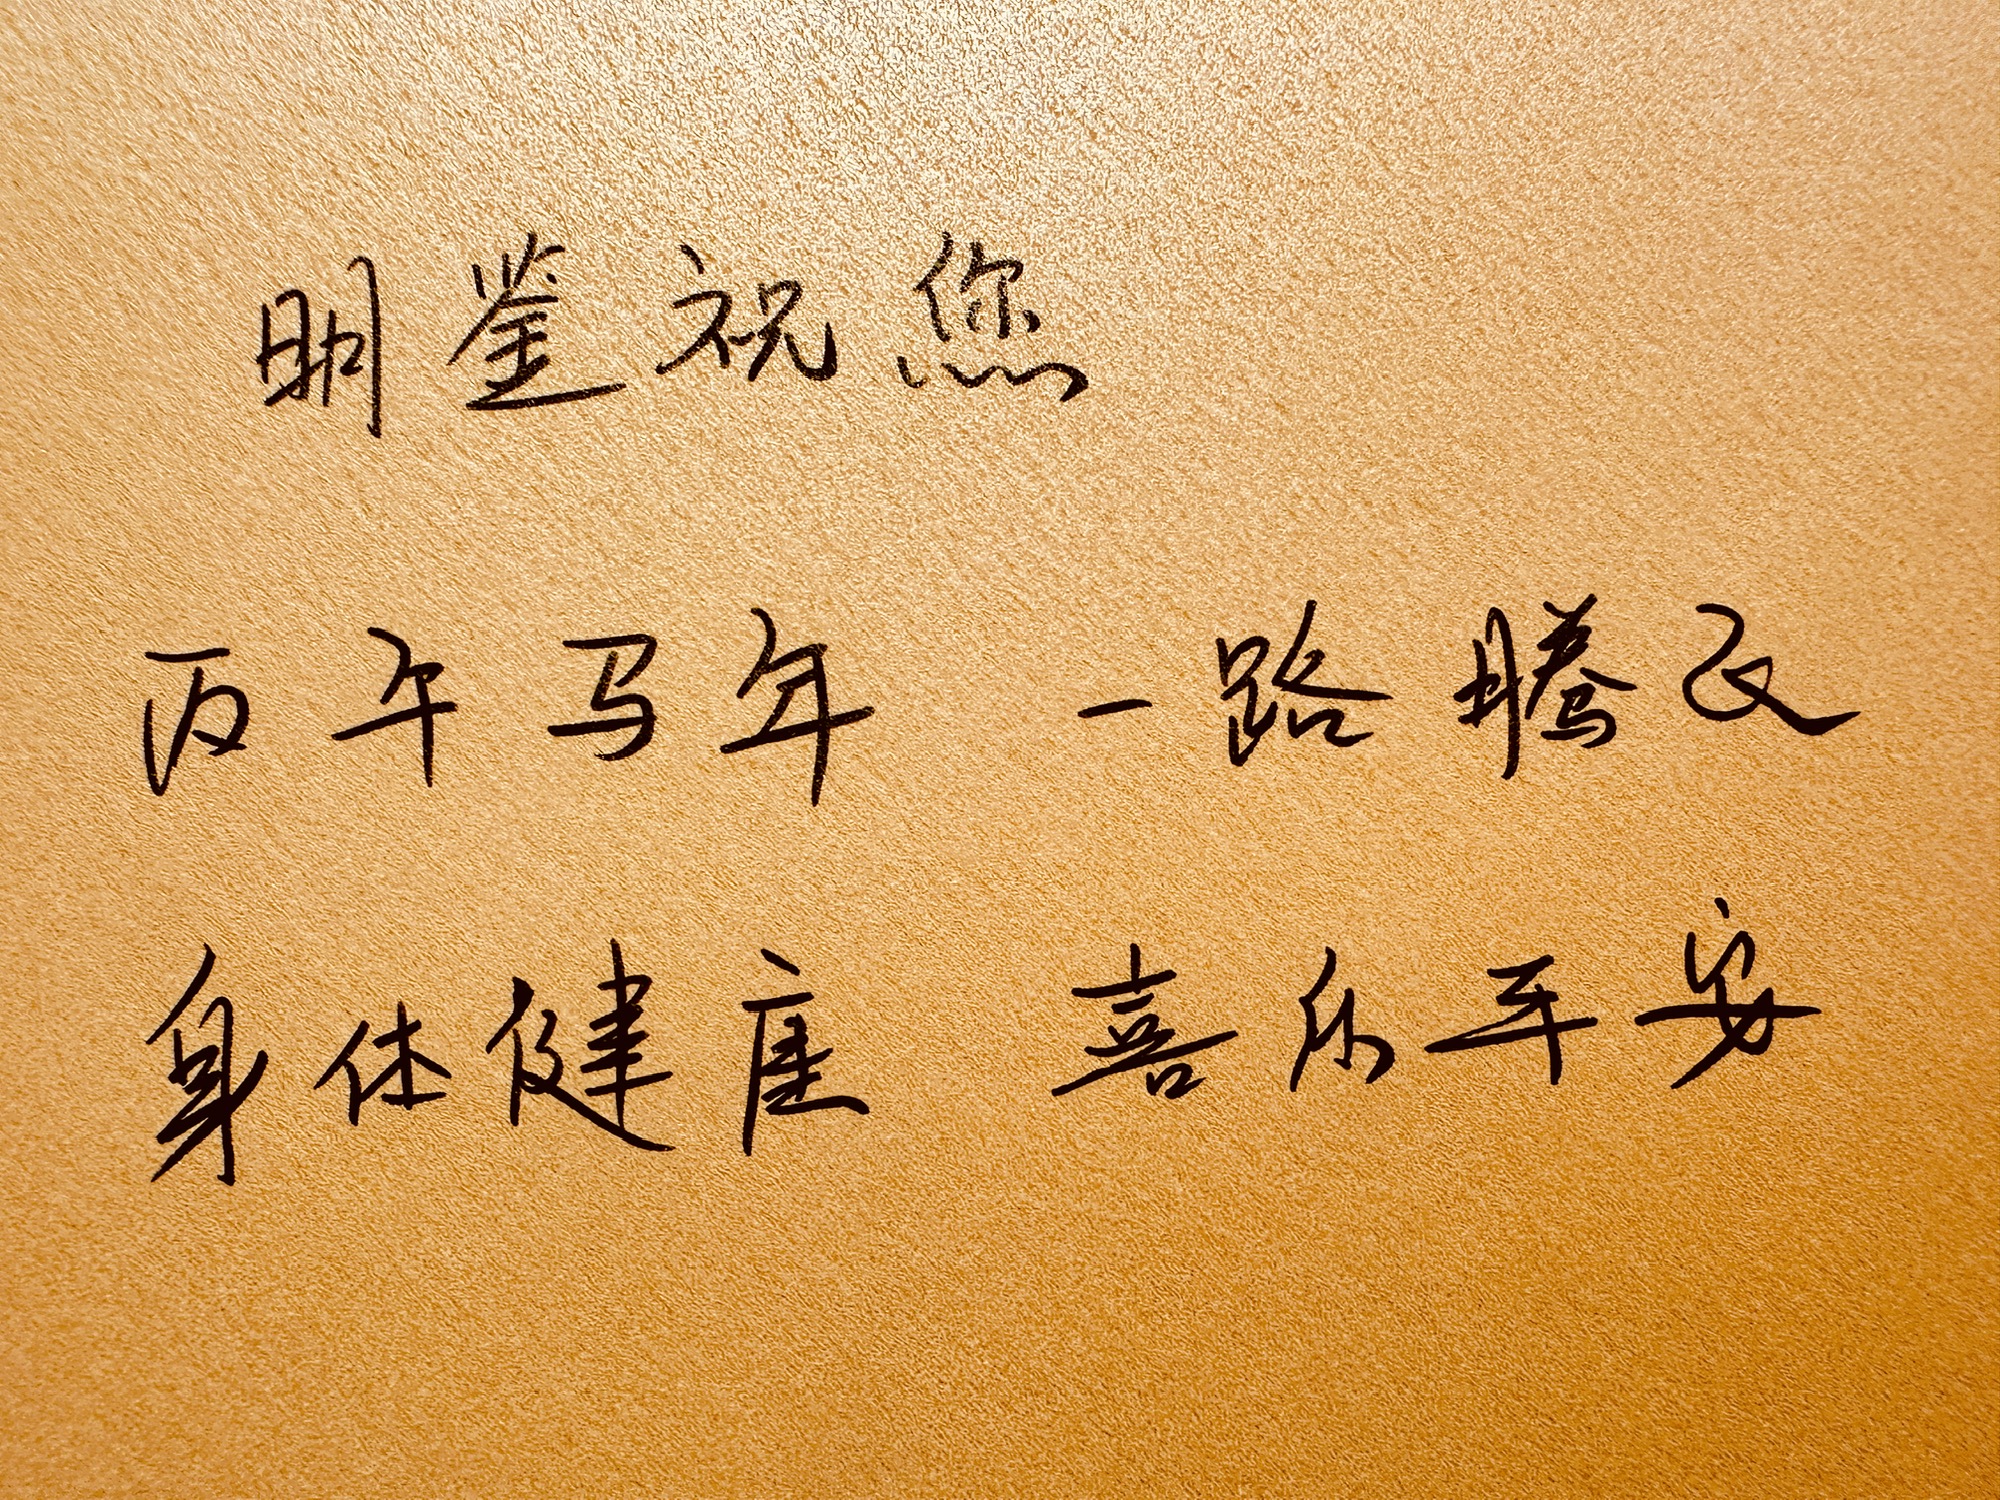 明鉴祝您
丙午马年 一路腾飞
身体健康 喜乐平安